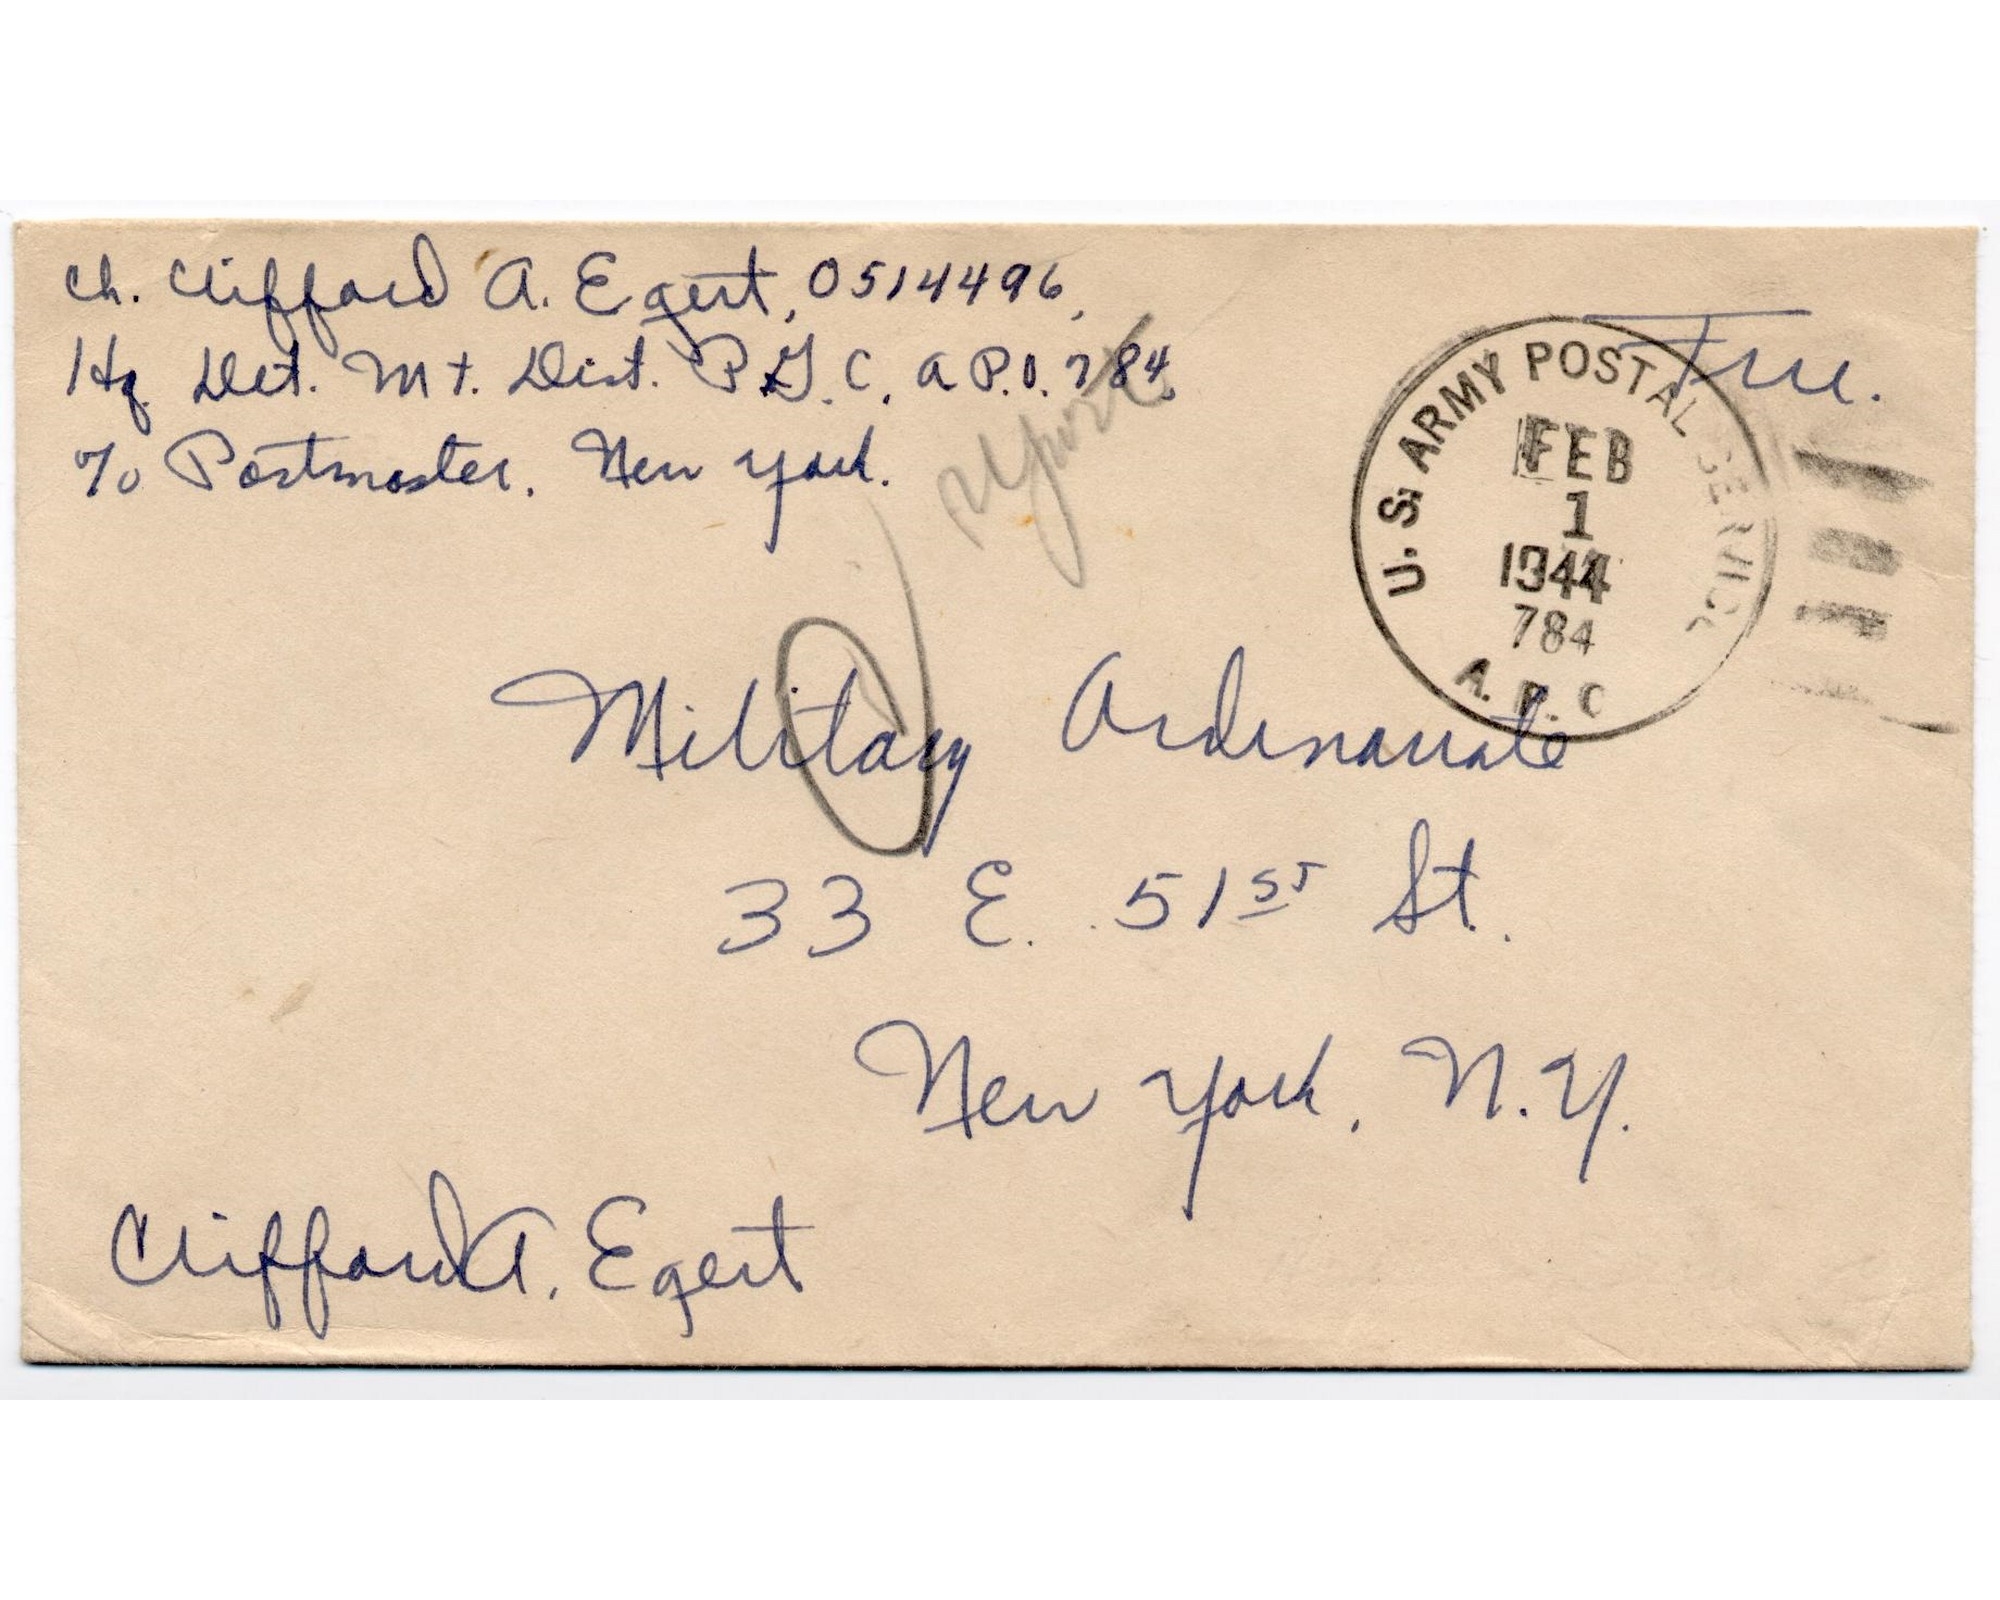 Ch. Clifford A. Egert, 0514496,
Hq. Det. Mt. Dist. P.G.C. A.P.O. 784,
c/o Postmaster. New York.
report
Free.
U.S. ARMY POSTAL SERVICE
FEB
1
1944
784
A. P. O
Military Ordinariate
33 E. 51st St.
New York, N.Y.
Clifford A. Egert